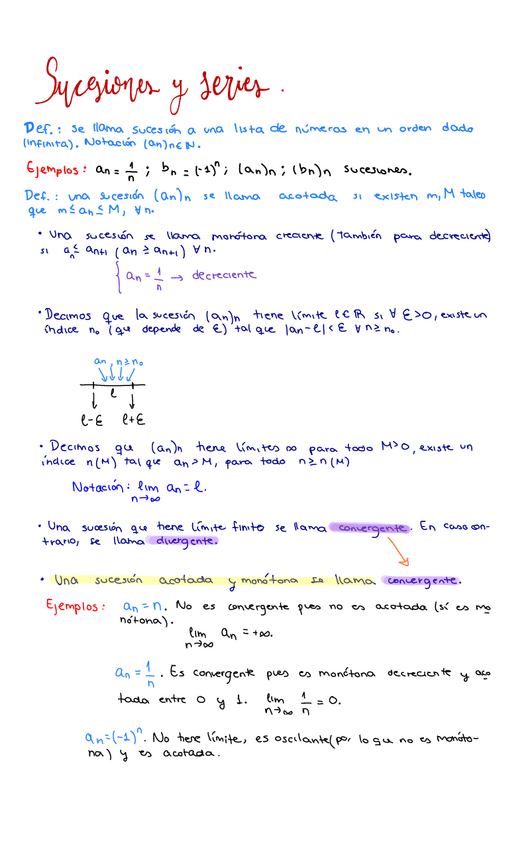 Sucesiones y series.
Def.: se llama sucesión a una lista de números en un orden dado
(infinita). Notación (an)n∈N.
Ejemplos: an = 1/n ; bn = (-1)^n ; (an)n ; (bn)n sucesiones.
Def.: una sucesión (an)n se llama acotada si existen m, M tales
que m ≤ an ≤ M, ∀n.
• Una sucesión se llama monótona creciente (también para decreciente)
si an ≤ an+1 (an ≥ an+1) ∀n.
{ an = 1/n → decreciente
• Decimos que la sucesión (an)n tiene límite l∈R si ∀ε>0, existe un
índice n0 (que depende de ε) tal que |an-l|<ε ∀n≥n0.
an, n≥n0
l
l-ε l+ε
• Decimos que (an)n tiene límites ∞ para todo M>0, existe un
índice n(M) tal que an>M, para todo n≥n(M)
Notación: lim an = l.
n→∞
• Una sucesión que tiene límite finito se llama convergente. En caso con-
trario, se llama divergente.
• Una sucesión acotada y monótona se llama convergente.
Ejemplos: an = n. No es convergente pues no es acotada (sí es mo
nótona).
lim an = +∞.
n→∞
an = 1/n. Es convergente pues es monótona decreciente y aco
tada entre 0 y 1. lim 1/n = 0.
n→∞
an = (-1)^n. No tiene límite, es oscilante (por lo que no es monóto-
na) y es acotada.